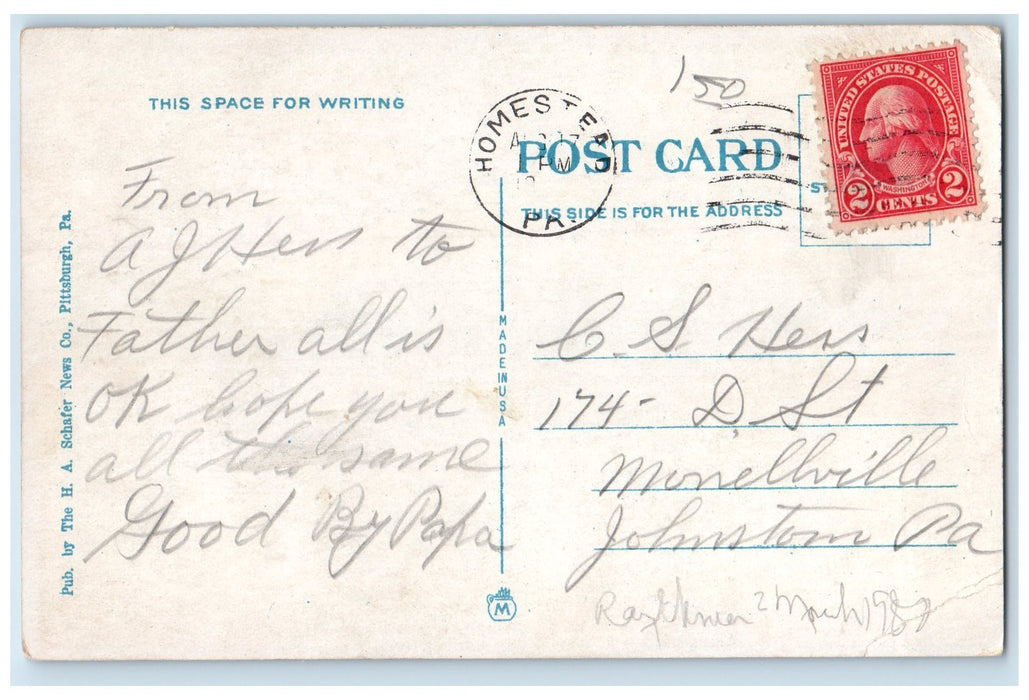 THIS SPACE FOR WRITING
From
A J Hess to
Father all is
OK hope you
all the same
Good By Papa
Pub. by The H. A. Schafer News Co., Pittsburgh, Pa.
MADE IN USA
M
150
HOMESTEAD
PM
PA.
POST CARD
THIS SIDE IS FOR THE ADDRESS
ST
UNITED STATES POSTAGE
WASHINGTON
2 CENTS 2
C. S Hess
174- D. St
Morrellville
Johnstown Pa
2 March